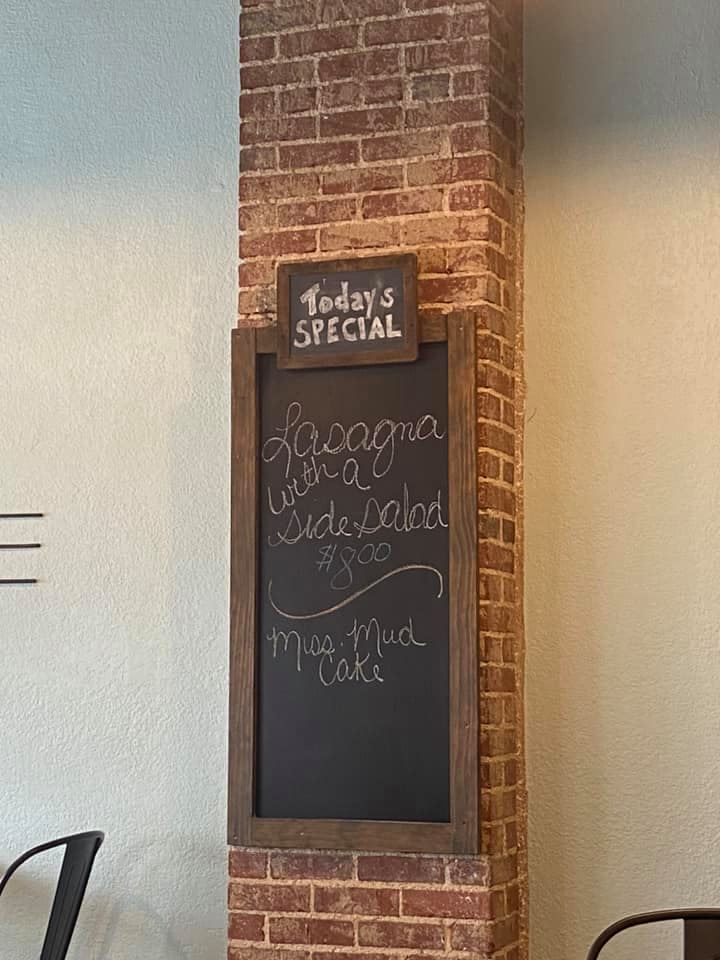 Today's
SPECIAL
Lasagna
with a
Side Salad
$8.00
Miss. Mud
Cake